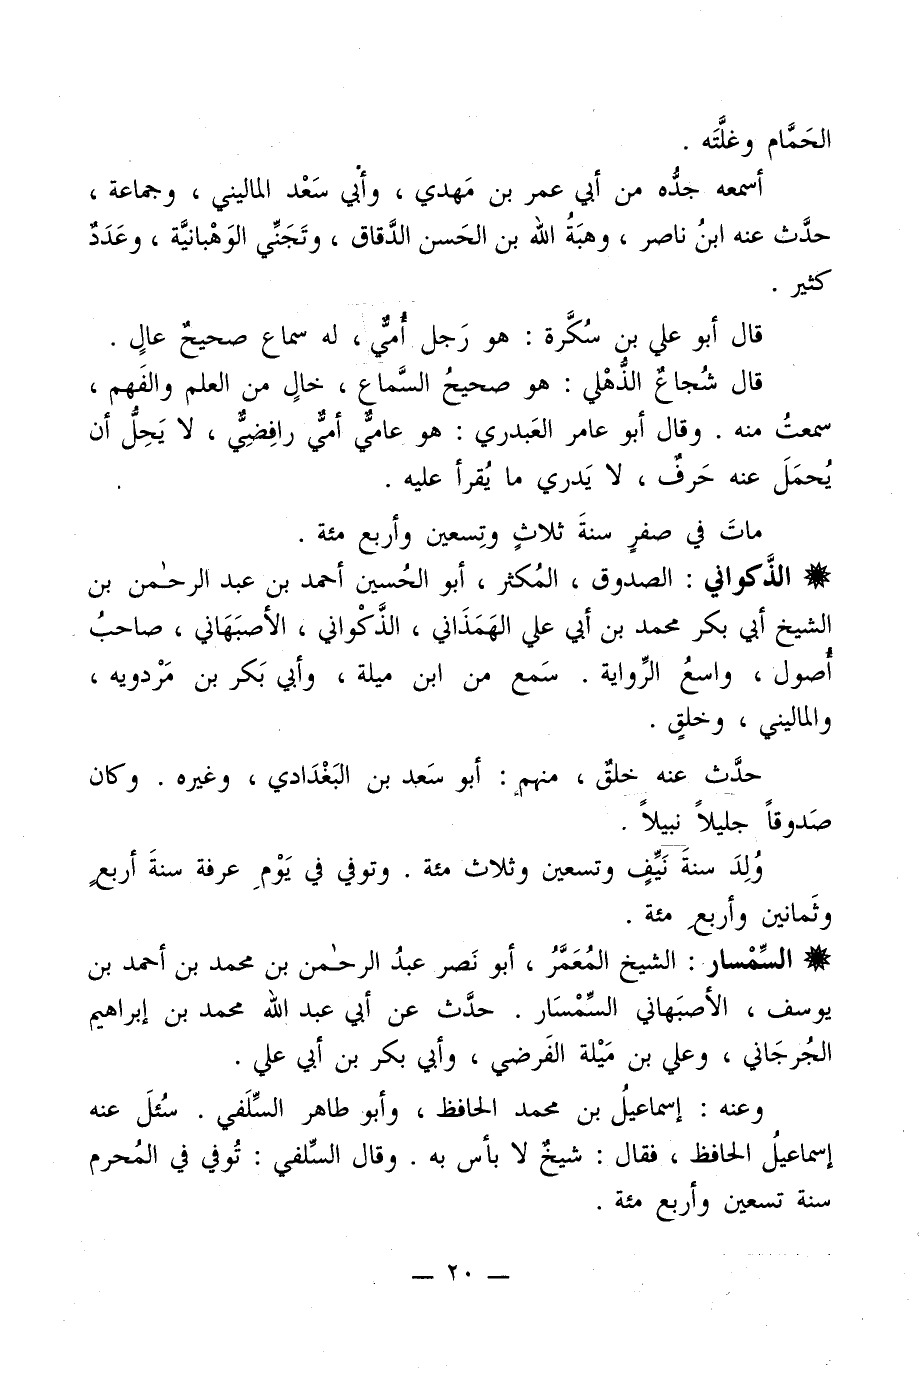 الحَمَّام وغلَّتَه .
أسمعه جدُّه من أبي عمر بن مَهدي ، وأبي سَعْد الماليني ، وجماعة ،
حدَّث عنه ابنُ ناصر ، وهبَةُ الله بن الحَسن الدَّقاق ، وتَجَنِّي الوَهْبانيَّة ، وعَدَدٌ
كثير .
قال أبو علي بن سُكَّرة : هو رَجل أُميٌّ ، له سماع صحيحٌ عالٍ .
قال شُجاعٌ الذُّهْلي : هو صحيحُ السَّماع ، خالٍ من العلم والفَهم ،
سمعتُ منه . وقال أبو عامر العَبدري : هو عاميٌّ أميٌّ رافِضيٌّ ، لا يَحِلُّ أن
يُحمَلَ عنه حَرفٌ ، لا يَدري ما يُقرأ عليه .
ماتَ في صفرٍ سنةَ ثلاثٍ وتِسعين وأربع مئة .
❋ الذَّكواني : الصدوق ، المُكثر ، أبو الحُسين أحمد بن عبد الرحمٰن بن
الشيخ أبي بكر محمد بن أبي علي الهَمَذاني ، الذَّكْواني ، الأصبَهاني ، صاحبُ
أُصول ، واسعُ الرِّواية . سَمع من ابن ميلة ، وأبي بَكر بن مَرْدويه ،
والماليني ، وخلقٍ .
حدَّث عنه خلقٌ ، منهم : أبو سَعد بن البَغْدَادي ، وغيره . وكان
صَدوقاً جليلاً نبيلاً .
وُلِدَ سنةَ نَيِّفٍ وتسعين وثلاث مئة . وتوفي في يَوْمِ عرفة سنةَ أربعٍ
وثَمانين وأربعِ مئة .
❋ السِّمْسار : الشيخ المُعَمَّرُ ، أبو نَصر عبدُ الرحمٰن بن محمد بن أحمد بن
يوسف ، الأصبَهاني السِّمْسَار . حدَّث عن أبي عبد الله محمد بن إبراهيم
الجُرجَاني ، وعلي بن مَيْلة الفَرضي ، وأبي بكر بن أبي علي .
وعنه : إسماعيلُ بن محمد الحافظ ، وأبو طاهر السِّلَفي . سُئلَ عنه
إسماعيلُ الحافظ ، فقال : شيخٌ لا بأس به . وقال السِّلفي : تُوفي في المُحرم
سنة تسعين وأربع مئة .
— ٢٠ —